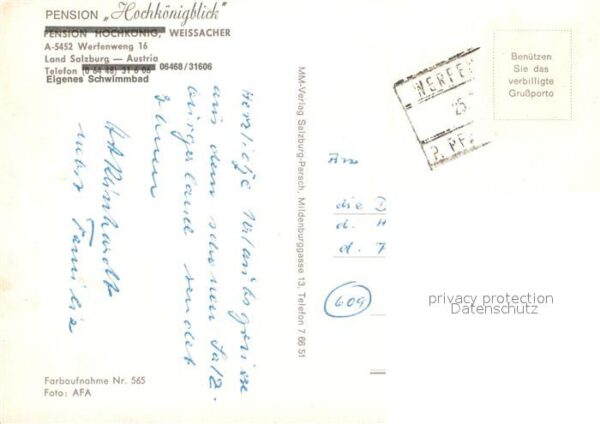 PENSION „Hochkönigblick"
PENSION HOCHKÖNIG, WEISSACHER
A-5452 Werfenweng 16
Land Salzburg — Austria
Telefon (0 64 48) 31 6 06 06468/31606
Eigenes Schwimmbad
Herzliche Urlaubsgrüsse
aus dem schönen Salz-
burgerland sendet
Ihnen
nebst Familie
Farbaufnahme Nr. 565
Foto: AFA
MM-Verlag Salzburg-Parsch, Mildenburggasse 13, Telefon 7 66 51
WERFE
25.
Benützen
Sie das
verbilligte
Grußporto
An
die
d.
d.
609
privacy protection
Datenschutz